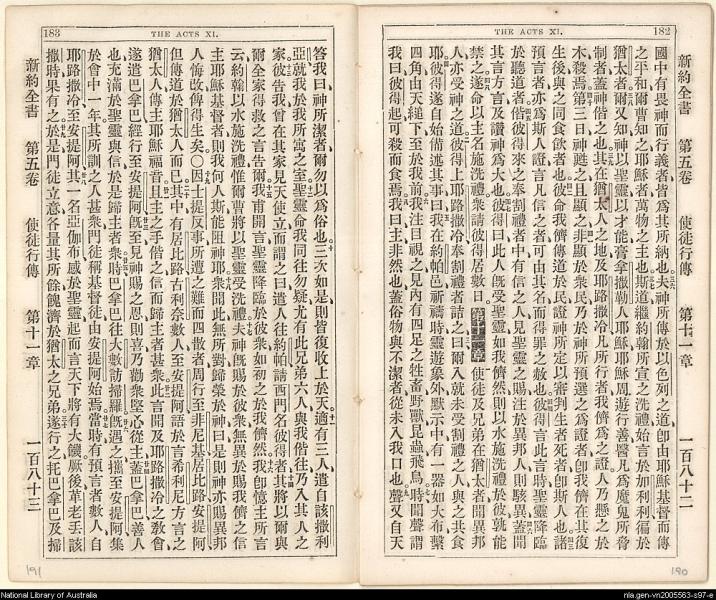 182
THE ACTS XI.
新約全書 第五卷 使徒行傳 第十一章 一百八十二
國中有畏神而行義者皆爲其所納也夫神所傳於以色列之道卽由耶穌基督而傳
之平和爾曹知之耶穌者萬物之主也斯道繼約翰所宣之洗禮始於加利利徧於
猶太者爾又知神以聖靈以才能膏拿撒勒人耶穌耶穌周遊行善醫凡爲魔鬼所脅
制者蓋神偕之也其在猶太人之地及耶路撒冷凡所行者我儕爲之證人乃懸之於
木殺焉第三日神甦之且顯之非顯於衆民乃於神所預選之爲證者卽我儕在其復
生後與之同食飲者也彼命我儕傳道於民證神所定以審判生者死者卽斯人也諸
預言者亦爲斯人證言凡信之者可由其名而得罪之赦也彼得言此言時聖靈降臨
於聽道者偕彼得來之奉割禮者中有信之人見聖靈之賜注於異邦人則駭異蓋聞
其言方言及讚神爲大也彼得曰此人旣受聖靈如我儕然則以水施洗禮於彼孰能
禁之遂命以主名施洗禮衆請彼得居數日 第十一章 使徒及兄弟在猶太者聞異邦
人亦受神之道彼得上耶路撒冷奉割禮者詰之曰爾入就未受割禮之人與之共食
耶彼得遂自始備述其事曰我在約帕邑祈禱時靈遊象外默示中有一器如大布繫
四角由天縋下至於我前我注目視之見內有四足之牲畜野獸昆蟲飛鳥時聞聲謂
我曰彼得起可殺而食焉我曰主非然也蓋俗物與不潔者從未入我口也聲又自天
190
183
THE ACTS XI.
答我曰神所潔者爾勿以爲俗也三次如是則皆復收上於天適有三人遣自該撒利
亞就我於我所寓之室聖靈命我同往勿疑尤有此兄弟六人與我偕往乃入其人之
家彼告我曾在其家見天使立而謂之曰遣人往約帕請西門名彼得者其將以爾與
爾全家得救之言告爾我甫開言聖靈降臨於彼衆如初之於我儕然我卽憶主所言
云約翰以水施洗禮惟爾曹將以聖靈受洗禮夫神旣賜於彼衆無異於賜我儕之信
主耶穌基督者則我何人斯能阻神耶衆聞此無所對歸榮於神曰是則神亦賜異邦
人悔改俾得生矣〇因士提反事所遭之難而四散者周行至非尼基居比路安提阿
但傳道於猶太人而已其中有居比路古利奈數人至安提阿語於言希利尼方言之
猶太人傳主耶穌福音且主之手偕之信而歸主者甚衆此言聞及耶路撒冷之敎會
遂遣巴拿巴經行至安提阿旣至見神賜之恩則喜乃勸衆堅心從主蓋巴拿巴善人
也充滿於聖靈與信於是歸主者衆時巴拿巴往大數訪掃羅旣遇之攜至安提阿集
於會中一年其所訓之人甚衆門徒稱基督徒由安提阿始焉當時有預言者數人自
耶路撒冷至安提阿其一名亞伽布感於聖靈起而言天下將有大饑厥後革老丟該
撒時果有之於是門徒立意各量其所餘餽濟於猶太之兄弟遂行之托巴拿巴及掃
新約全書 第五卷 使徒行傳 第十一章 一百八十三
191
National Library of Australia
nla.gen-vn2005563-s97-e